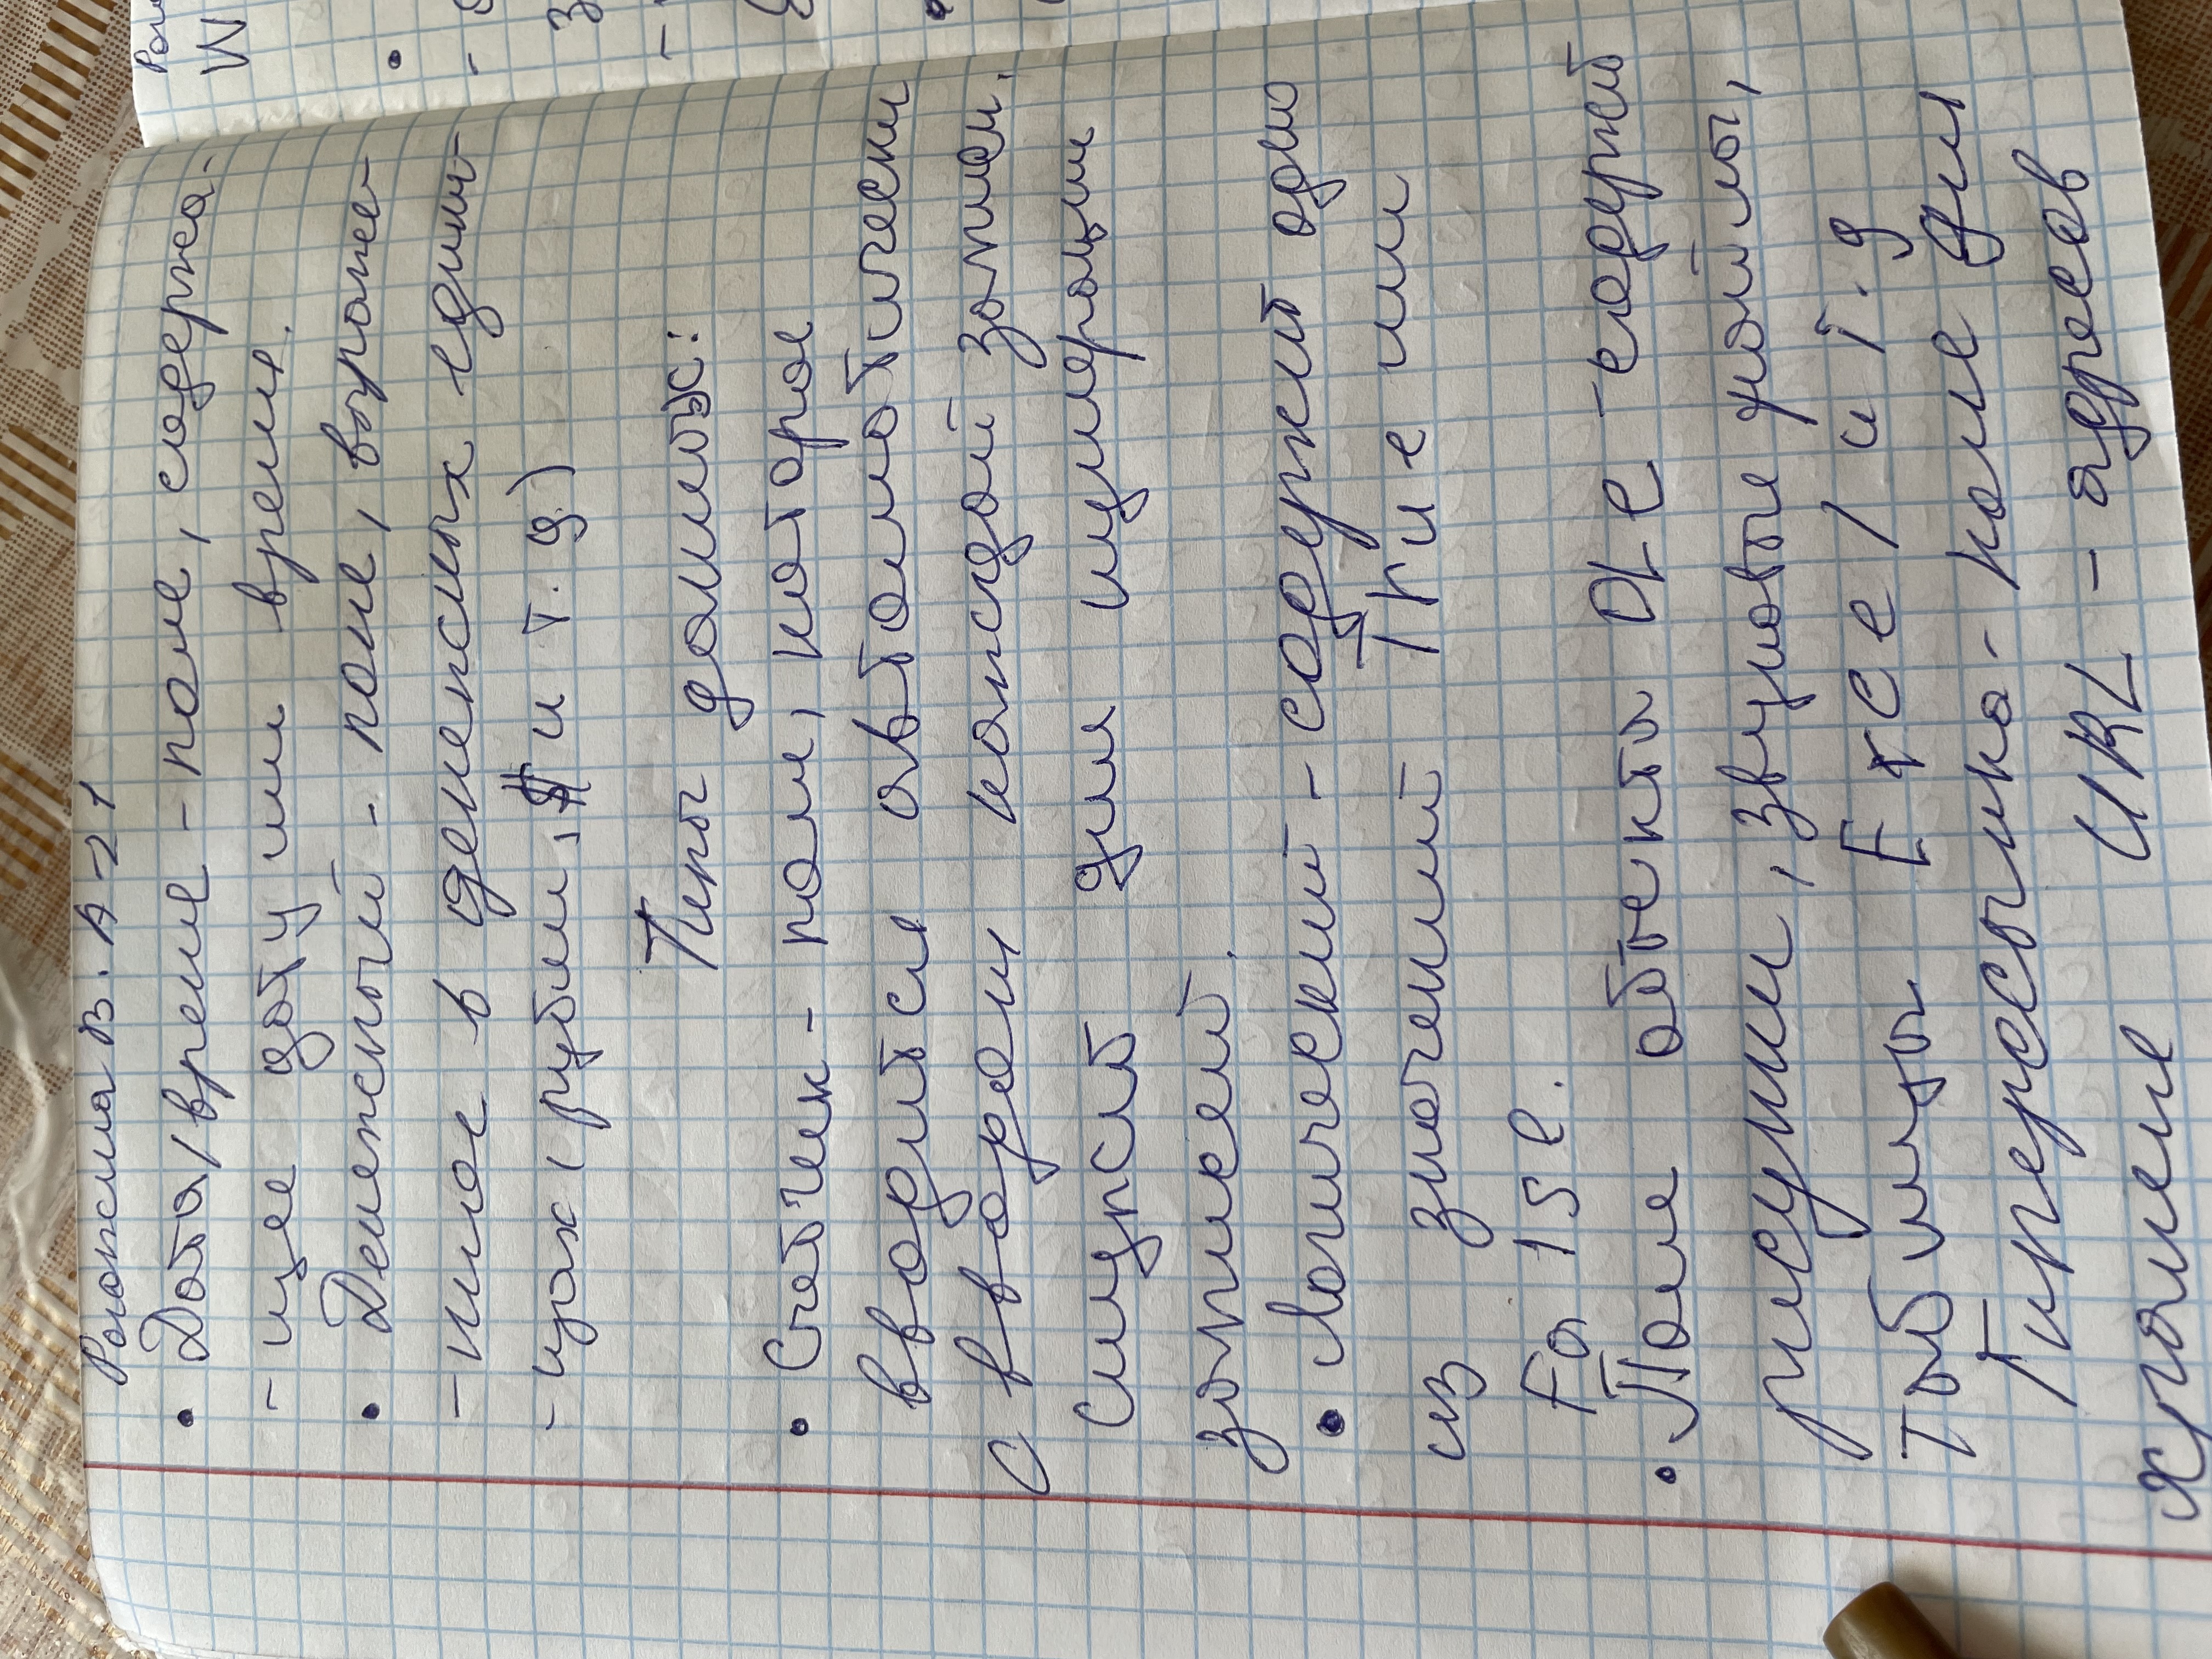 В. А-21
• Дата/время - поле, содержа-
- щее дату или время.
• Денежный - поле, выраже-
- нное в денежных едини-
- цах (рубли, $ и т. д.)
Типы данных:
• Счётчик - поле, которое
вводится автоматически
с вводом каждой записи.
Служит для нумерации
записей.
• Логический - содержит одно
из значений True или
False.
• Поле объекта OLE - содержит
рисунки, звуковые файлы,
таблицы Excel и т. д
Гиперссылка - поле для
URL - адресов